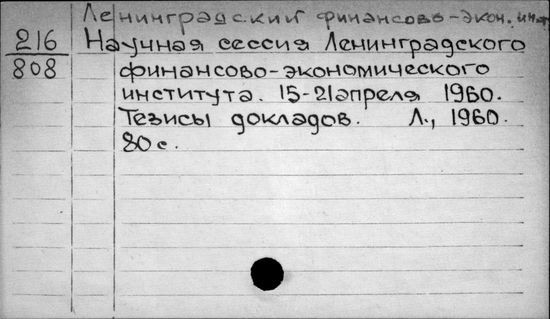 Ленинградский финансово-экон. ин-т
216
808
Научная сессия Ленинградского
финансово-экономического
института. 15-21 апреля 1960.
Тезисы докладов. Л., 1960.
80 с.